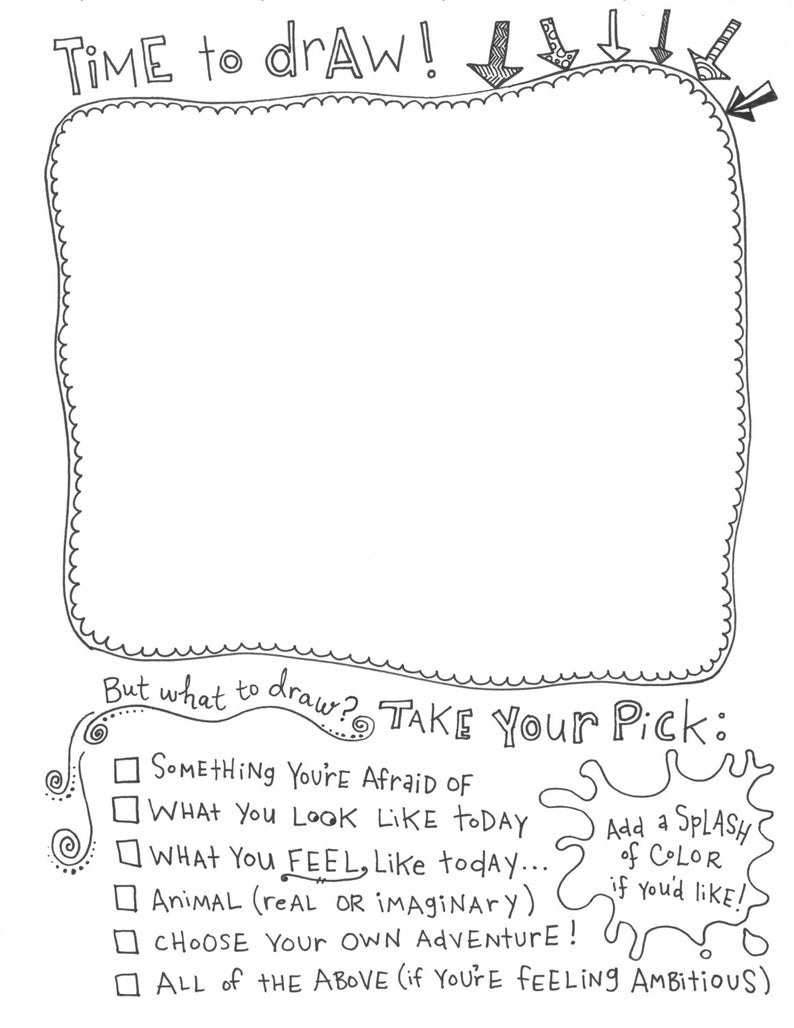 TiME to drAW!
But what to draw?
TAKE Your Pick:
SoMEtHiNg You'rE AfrAiD oF
WHAt You LOOK LiKE toDAY
WHAt You FEEL Like today...
ANiMAL (reAL OR iMAgiNArY)
CHOOSE YOUr OWN AdVENturE!
ALL of tHE ABOVE (if YOU'rE fEELiNg AMBitiOUS)
Add a SPLASH
of COLOR
if You'd liKE!